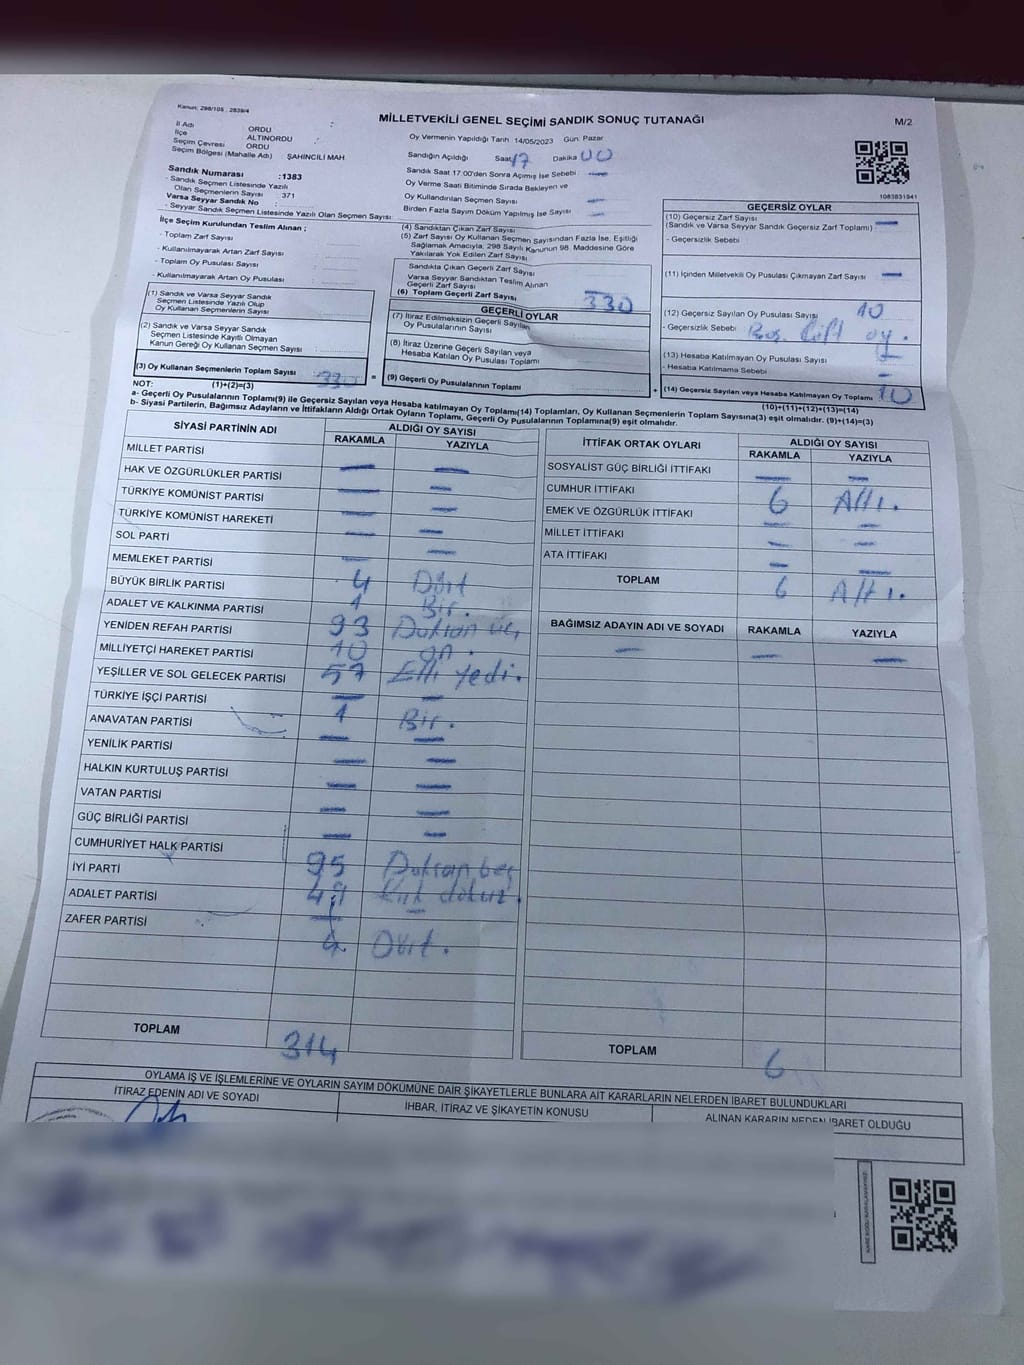 Kanun: 298/105 , 2839/4
MİLLETVEKİLİ GENEL SEÇİMİ SANDIK SONUÇ TUTANAĞI
M/2
İl Adı : ORDU
İlçe ALTINORDU
Seçim Çevresi ORDU
Seçim Bölgesi (Mahalle Adı) : ŞAHİNCİLİ MAH
Oy Vermenin Yapıldığı Tarih 14/05/2023 Gün Pazar
Sandığın Açıldığı Saat 17 Dakika 00
Sandık Saat 17:00'den Sonra Açılmış İse Sebebi —
Oy Verme Saati Bitiminde Sırada Bekleyen ve
Oy Kullandırılan Seçmen Sayısı —
Birden Fazla Sayım Döküm Yapılmış İse Sayısı —
Sandık Numarası :1383
- Sandık Seçmen Listesinde Yazılı
Olan Seçmenlerin Sayısı : 371
Varsa Seyyar Sandık No :
- Seyyar Sandık Seçmen Listesinde Yazılı Olan Seçmen Sayısı
1083831941
İlçe Seçim Kurulundan Teslim Alınan ;
- Toplam Zarf Sayısı
- Kullanılmayarak Artan Zarf Sayısı
- Toplam Oy Pusulası Sayısı
- Kullanılmayarak Artan Oy Pusulası
(1) Sandık ve Varsa Seyyar Sandık
Seçmen Listesinde Yazılı Olup
Oy Kullanan Seçmenlerin Sayısı
(2) Sandık ve Varsa Seyyar Sandık
Seçmen Listesinde Kayıtlı Olmayan
Kanun Gereği Oy Kullanan Seçmen Sayısı
(3) Oy Kullanan Seçmenlerin Toplam Sayısı 330
(4) Sandıktan Çıkan Zarf Sayısı
(5) Zarf Sayısı Oy Kullanan Seçmen Sayısından Fazla İse, Eşitliği
Sağlamak Amacıyla, 298 Sayılı Kanunun 98. Maddesine Göre
Yakılarak Yok Edilen Zarf Sayısı
Sandıkta Çıkan Geçerli Zarf Sayısı
Varsa Seyyar Sandıktan Teslim Alınan
Geçerli Zarf Sayısı
(6) Toplam Geçerli Zarf Sayısı 330
GEÇERLİ OYLAR
(7) İtiraz Edilmeksizin Geçerli Sayılan
Oy Pusulalarının Sayısı
(8) İtiraz Üzerine Geçerli Sayılan veya
Hesaba Katılan Oy Pusulası Toplamı
= (9) Geçerli Oy Pusulalarının Toplamı
GEÇERSİZ OYLAR
(10) Geçersiz Zarf Sayısı —
(Sandık ve Varsa Seyyar Sandık Geçersiz Zarf Toplamı)
- Geçersizlik Sebebi :
(11) İçinden Milletvekili Oy Pusulası Çıkmayan Zarf Sayısı —
(12) Geçersiz Sayılan Oy Pusulası Sayısı 10
- Geçersizlik Sebebi Boş. Çift oy.
(13) Hesaba Katılmayan Oy Pusulası Sayısı —
- Hesaba Katılmama Sebebi —
+ (14) Geçersiz Sayılan veya Hesaba Katılmayan Oy Toplamı 10
NOT: (1)+(2)=(3)
(10)+(11)+(12)+(13)=(14)
a- Geçerli Oy Pusulalarının Toplamı(9) ile Geçersiz Sayılan veya Hesaba katılmayan Oy Toplamı(14) Toplamları, Oy Kullanan Seçmenlerin Toplam Sayısına(3) eşit olmalıdır. (9)+(14)=(3)
b- Siyasi Partilerin, Bağımsız Adayların ve İttifakların Aldığı Ortak Oyların Toplamı, Geçerli Oy Pusulalarının Toplamına(9) eşit olmalıdır.
SİYASİ PARTİNİN ADI
ALDIĞI OY SAYISI
RAKAMLA YAZIYLA
MİLLET PARTİSİ — —
HAK VE ÖZGÜRLÜKLER PARTİSİ — —
TÜRKİYE KOMÜNİST PARTİSİ — —
TÜRKİYE KOMÜNİST HAREKETİ — —
SOL PARTİ — —
MEMLEKET PARTİSİ 4 Dört
BÜYÜK BİRLİK PARTİSİ 1 Bir.
ADALET VE KALKINMA PARTİSİ 93 Doksan üç
YENİDEN REFAH PARTİSİ 10 on.
MİLLİYETÇİ HAREKET PARTİSİ 57 Elli yedi.
YEŞİLLER VE SOL GELECEK PARTİSİ — —
TÜRKİYE İŞÇİ PARTİSİ 1 Bir.
ANAVATAN PARTİSİ — —
YENİLİK PARTİSİ — —
HALKIN KURTULUŞ PARTİSİ — —
VATAN PARTİSİ — —
GÜÇ BİRLİĞİ PARTİSİ — —
CUMHURİYET HALK PARTİSİ 95 Doksan beş
İYİ PARTİ 49 Kırk dokuz.
ADALET PARTİSİ — —
ZAFER PARTİSİ 4 Dört.
TOPLAM 314
İTTİFAK ORTAK OYLARI
ALDIĞI OY SAYISI
RAKAMLA YAZIYLA
SOSYALİST GÜÇ BİRLİĞİ İTTİFAKI — —
CUMHUR İTTİFAKI 6 Altı.
EMEK VE ÖZGÜRLÜK İTTİFAKI — —
MİLLET İTTİFAKI — —
ATA İTTİFAKI — —
TOPLAM 6 Altı.
BAĞIMSIZ ADAYIN ADI VE SOYADI RAKAMLA YAZIYLA
— — —
TOPLAM 6
OYLAMA İŞ VE İŞLEMLERİNE VE OYLARIN SAYIM DÖKÜMÜNE DAİR ŞİKAYETLERLE BUNLARA AİT KARARLARIN NELERDEN İBARET BULUNDUKLARI
İTİRAZ EDENİN ADI VE SOYADI
İHBAR, İTİRAZ VE ŞİKAYETİN KONUSU
ALINAN KARARIN NEDEN İBARET OLDUĞU